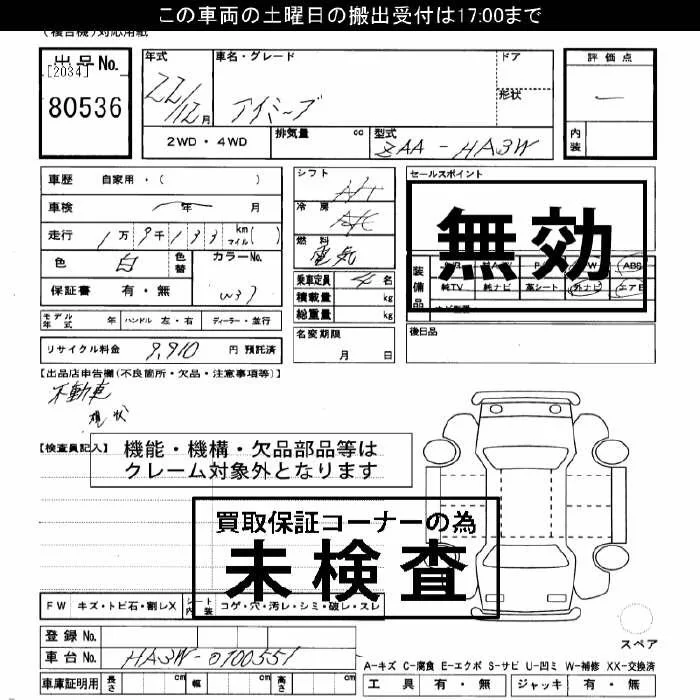 この車両の土曜日の搬出受付は17:00まで
(複合機)対応用紙
出品No.
[2034]
80536
年式
22/12月
車名・グレード
アイミーブ
ドア
形状
評価点
内装
2WD・4WD
排気量 cc
型式
ZAA-HA3W
車歴 自家用・( )
車検 年 月
走行 1万9千133 km マイル( )
色 白
色替
カラーNo.
W37
保証書 有・無
シフト A/T
冷房 A/C
燃料 電気
乗車定員 4名
積載量 kg
総重量 kg
セールスポイント
無効
装備品
ABS
純TV 純ナビ 革シート 外ナビ エアB
モデル年式 年 ハンドル 左・右 ディーラー・並行
名変期限
月 日
後日品
リサイクル料金 9,910 円 預託済
【出品店申告欄(不良箇所・欠品・注意事項等)】
不動車
現状
【検査員記入】
機能・機構・欠品部品等は
クレーム対象外となります
買取保証コーナーの為
未検査
FW キズ・トビ石・割レX
シート内装 コゲ・穴・汚レ・シミ・破レ・スレ
スペア
登録No.
車台No. HA3W-0100551
車庫証明用 長さ cm 幅 cm 高さ cm
A-キズ C-腐食 E-エクボ S-サビ U-凹ミ W-補修 XX-交換済
工具 有・無 ジャッキ 有・無